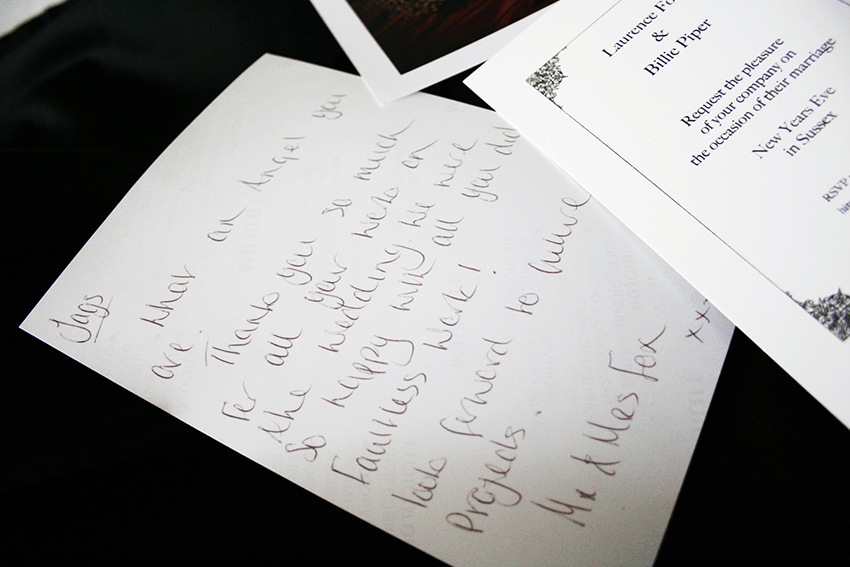 Jags
What an Angel you
are. Thank you so much
For all your work on
the wedding. We were
So happy with all you did
Faultless Work!
look forward to future
Projects.
Mr & Mrs Fox
xx
Laurence Fo
&
Billie Piper
Request the pleasure
of your company on
the occasion of their marriage
New Years Eve
in Sussex
RSVP